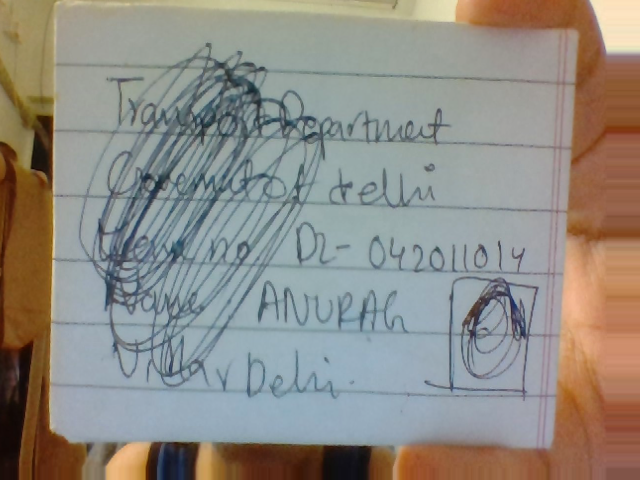 Transport Department
Government of delhi
no DL- 042011014
Name ANURAG
Vihar Delhi.